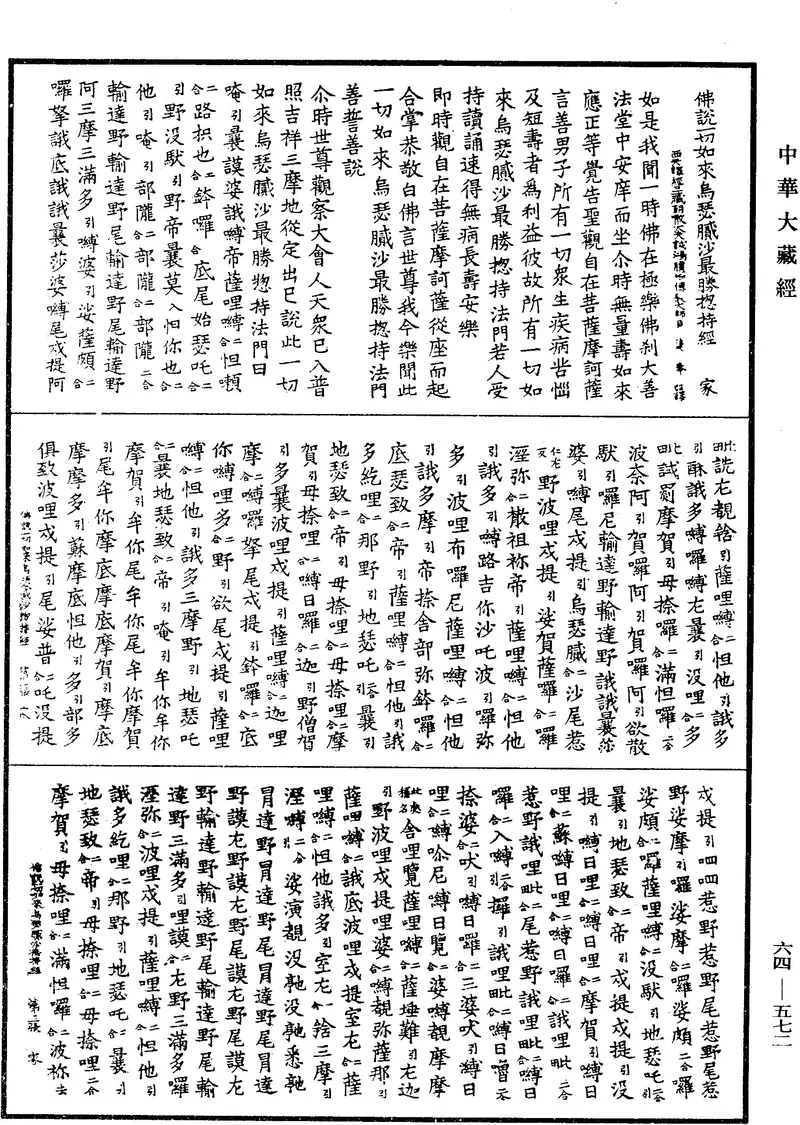 中華大藏經
六四—五七二
佛說一切如來烏瑟膩沙最勝揔持經 家
如是我聞一時佛在極樂佛刹大善
法堂中安庠而坐尒時無量壽如來
應正等覺告聖觀自在菩薩摩訶薩
言善男子所有一切衆生疾病苦惱
及短壽者爲利益彼故所有一切如
來烏瑟膩沙最勝揔持法門若人受
持讀誦速得無病長壽安樂
即時觀自在菩薩摩訶薩從座而起
合掌恭敬白佛言世尊我今樂聞此
一切如來烏瑟膩沙最勝揔持法門
善誓善說
尒時世尊觀察大會人天衆已入普
照吉祥三摩地從定出已說此一切
如來烏瑟膩沙最勝揔持法門曰
唵引曩謨婆誐嚩帝薩哩嚩二合怛賴
二合路枳也二合鉢囉二合底尾始瑟吒二合
引野没䭾引野帝曩莫入怛你也二合
他引唵引部隴二合部隴二合部隴二合
輸達野輸達野尾輸達野尾輸達野
阿三摩三滿多引嚩婆引娑薩頗二合
囉拏誐底誐誐曩莎婆嚩尾戍提阿
誐多
引酥誐多嚩囉嚩左曩引没哩二合多
摩賀引母捺囉二合滿怛囉二合
波奈阿引賀囉阿引賀囉阿引欲散
䭾引囉尼輸達野輸達野誐誐曩莎
婆引嚩尾戍提引烏瑟膩二合沙尾惹
野波哩戍提引娑賀薩囉二合囉
溼弥二合散祖祢帝引薩哩嚩二合怛他
引誐多引嚩路吉你沙吒波引囉弥
多引波哩布囉尼薩哩嚩二合怛他
引誐多摩引帝捺舍部弥鉢囉二合
底瑟致二合帝引薩哩嚩二合怛他引誐
多紇哩二合那野引地瑟吒二合曩引
地瑟致二合帝引母捺哩二合母捺哩二合摩
賀引母捺哩二合嚩日囉二合迦引野僧賀
引多曩波哩戍提引薩哩嚩二合迦哩
摩二合嚩囉拏尾戍提引鉢囉二合底
你嚩哩多二合野引欲尾戍提引薩哩
嚩二合怛他引誐多三摩野引地瑟吒
二合曩地瑟致二合帝引唵引牟你牟你
摩賀引牟你尾牟你尾牟你摩賀
引尾牟你摩底摩底摩賀引摩底
摩摩多引蘇摩底怛他引多引部多
俱致波哩戍提引尾娑普二合吒没提
戍提引惹野惹野尾惹野尾惹
野娑摩二合囉娑摩二合囉娑頗二合囉
娑頗二合囉薩哩嚩二合没䭾引地瑟吒二合
曩引地瑟致二合帝引戍提戍提引没
提引嚩日哩二合嚩日哩二合摩賀引嚩日
哩二合蘇嚩日哩二合嚩日囉二合誐哩毗二合
惹野誐哩毗二合尾惹野誐哩毗二合嚩日
誐哩毗二合嚩日
捺婆二合吠引嚩日囉二合三婆吠引嚩日
哩二合嚩日覽二合婆嚩覩摩摩
舍哩覽薩哩嚩二合薩埵難引左迦
引野波哩戍提哩婆二合嚩覩弥薩那引
薩哩嚩二合誐底波哩戍提室左二合薩
哩嚩二合怛他誐多引室左二合三摩引
溼嚩二合娑演覩没䭾没䭾悉䭾
冐達野冐達野尾冐達野尾冐達
野謨左野謨左野尾謨左野尾謨左
野輸達野輸達野尾輸達野尾輸
達野三滿多引哩謨二合左野三滿多囉
溼弥二合波哩戍提引薩哩嚩二合怛他引
誐多紇哩二合那野引地瑟吒二合曩引
地瑟致二合帝引母捺哩二合母捺哩二合
摩賀引母捺哩二合滿怛囉二合波祢